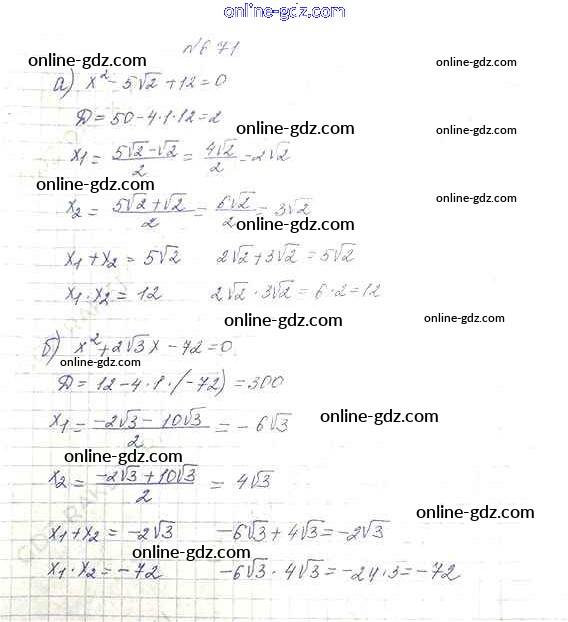 online-gdz.com
№671
online-gdz.com online-gdz.com
а) x² - 5√2 + 12 = 0
Д = 50 - 4·1·12 = 2
online-gdz.com
x1 = (5√2 - √2)/2 = 4√2/2 = 2√2
online-gdz.com
online-gdz.com
x2 = (5√2 + √2)/2 = 6√2/2 = 3√2
online-gdz.com
online-gdz.com
x1 + x2 = 5√2 2√2 + 3√2 = 5√2
x1 · x2 = 12 2√2 · 3√2 = 6·2 = 12
online-gdz.com online-gdz.com
б) x² + 2√3x - 72 = 0
online-gdz.com
Д = 12 - 4·1·(-72) = 300
x1 = (-2√3 - 10√3)/2 = -6√3
online-gdz.com
online-gdz.com
x2 = (-2√3 + 10√3)/2 = 4√3
online-gdz.com
x1 + x2 = -2√3 -6√3 + 4√3 = -2√3
online-gdz.com
x1 · x2 = -72 -6√3 · 4√3 = -24·3 = -72